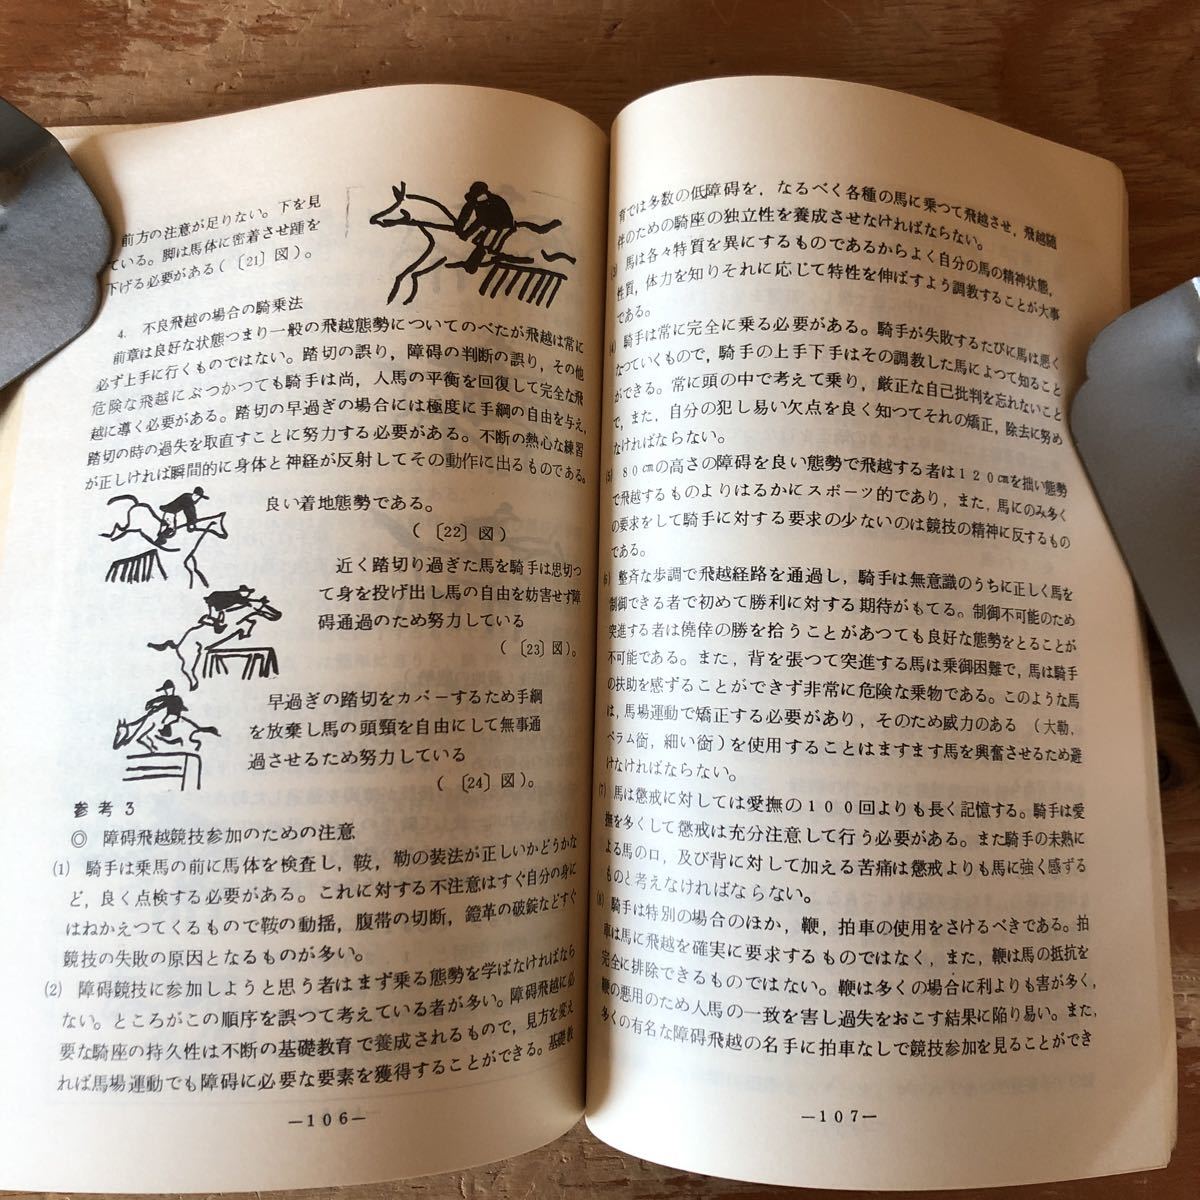 前方の注意が足りない。下を見
ている。脚は馬体に密着させ踵を
下げる必要がある(〔21〕図)。
4. 不良飛越の場合の騎乗法
前章は良好な状態つまり一般の飛越態勢についてのべたが飛越は常に
必ず上手に行くものではない。踏切の誤り,障碍の判断の誤り,その他
危険な飛越にぶつかつても騎手は尚,人馬の平衡を回復して完全な飛
越に導く必要がある。踏切の早過ぎの場合には極度に手綱の自由を与え,
踏切の時の過失を取直すことに努力する必要がある。不断の熱心な練習
が正しければ瞬間的に身体と神経が反射してその動作に出るものである。
良い着地態勢である。
(〔22〕図)
近く踏切り過ぎた馬を騎手は思切つ
て身を投げ出し馬の自由を妨害せず障
碍通過のため努力している
(〔23〕図)。
早過ぎの踏切をカバーするため手綱
を放棄し馬の頭頸を自由にして無事通
過させるため努力している
(〔24〕図)。
参考3
◎ 障碍飛越競技参加のための注意
(1) 騎手は乗馬の前に馬体を検査し,鞍,勒の装法が正しいかどうかな
ど,良く点検する必要がある。これに対する不注意はすぐ自分の身に
はねかえつてくるもので鞍の動揺,腹帯の切断,鐙革の破錠などすぐ
競技の失敗の原因となるものが多い。
(2) 障碍競技に参加しようと思う者はまず乗る態勢を学ばなければなら
ない。ところがこの順序を誤つて考えている者が多い。障碍飛越に必
要な騎座の持久性は不断の基礎教育で養成されるもので,見方を変え
れば馬場運動でも障碍に必要な要素を獲得することができる。基礎教
—106—
育では多数の低障碍を,なるべく各種の馬に乗つて飛越させ,飛越随
伴のための騎座の独立性を養成させなければならない。
(3) 馬は各々特質を異にするものであるからよく自分の馬の精神状態,
性質,体力を知りそれに応じて特性を伸ばすよう調教することが大事
である。
(4) 騎手は常に完全に乗る必要がある。騎手が失敗するたびに馬は悪く
なつていくもので,騎手の上手下手はその調教した馬によつて知ること
ができる。常に頭の中で考えて乗り,厳正な自己批判を忘れないこと
で,また,自分の犯し易い欠点を良く知つてそれの矯正,除去に努め
なければならない。
(5) 80㎝の高さの障碍を良い態勢で飛越する者は120㎝を拙い態勢
で飛越するものよりはるかにスポーツ的であり,また,馬にのみ多く
の要求をして騎手に対する要求の少ないのは競技の精神に反するもの
である。
(6) 整斉な歩調で飛越経路を通過し,騎手は無意識のうちに正しく馬を
制御できる者で初めて勝利に対する期待がもてる。制御不可能のため
突進する者は僥倖の勝を拾うことがあつても良好な態勢をとることが
不可能である。また,背を張つて突進する馬は乗御困難で,馬は騎手
の扶助を感ずることができず非常に危険な乗物である。このような馬
は,馬場運動で矯正する必要があり,そのため威力のある (大勒,
ペラム銜,細い銜)を使用することはますます馬を興奮させるため避
けなければならない。
(7) 馬は懲戒に対しては愛撫の100回よりも長く記憶する。騎手は愛
撫を多くして懲戒は充分注意して行う必要がある。また騎手の未熟に
よる馬の口,及び背に対して加える苦痛は懲戒よりも馬に強く感ずる
ものと考えなければならない。
(8) 騎手は特別の場合のほか,鞭,拍車の使用をさけるべきである。拍
車は馬に飛越を確実に要求するものではなく,また,鞭は馬の抵抗を
完全に排除できるものではない。鞭は多くの場合に利よりも害が多く,
鞭の悪用のため人馬の一致を害し過失をおこす結果に陥り易い。また,
多くの有名な障碍飛越の名手に拍車なしで競技参加を見ることができ
—107—